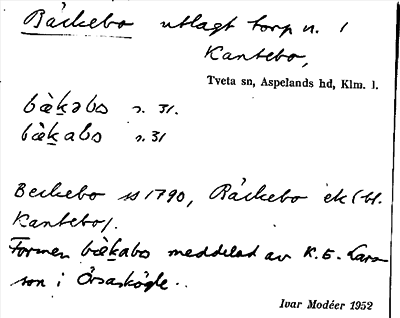 Bäckebo utlagt torp u. 1
Kantebo,
Tveta sn, Aspelands hd, Klm. l.
bὰḵəbo s. 31.
bὰḵabo s. 31
Beckebo ss 1790, Bäckebo ek (bl.
Kantebo).
Formen bὰḵabo meddelad av K. E. Lars
son i Örsaskögle..
Ivar Modéer 1952